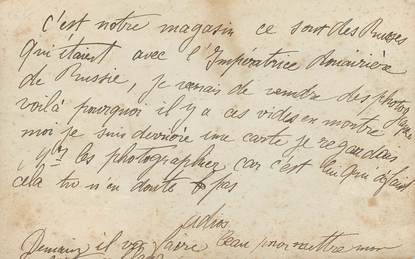 c'est notre magasin ce sont des Russes
qui étaient avec l'Impératrice Douairière
de Russie, je venais de vendre des photos
voilà pourquoi il y a ces vides en montre
moi je suis derrière une carte je regardais
les photographier car c'est lui qui
cela tu n'en doute pas
adios
Demain il va faire beau pour mettre mon